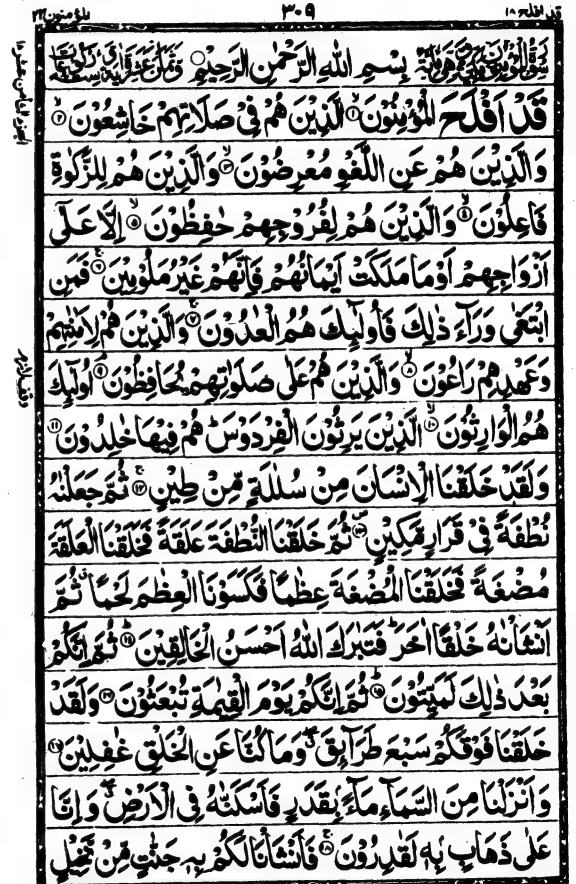 قد افلح ١٨ ٣٠٩ المؤمنون ٢٣
بِسْمِ اللهِ الرَّحْمٰنِ الرَّحِيْمِ
قَدْ اَفْلَحَ الْمُؤْمِنُوْنَ ۙ١ الَّذِيْنَ هُمْ فِيْ صَلَاتِهِمْ خَاشِعُوْنَ ۙ٢
وَالَّذِيْنَ هُمْ عَنِ اللَّغْوِ مُعْرِضُوْنَ ۙ٣ وَالَّذِيْنَ هُمْ لِلزَّكٰوةِ
فَاعِلُوْنَ ۙ٤ وَالَّذِيْنَ هُمْ لِفُرُوْجِهِمْ حٰفِظُوْنَ ۙ٥ اِلَّا عَلٰٓى
اَزْوَاجِهِمْ اَوْ مَا مَلَكَتْ اَيْمَانُهُمْ فَاِنَّهُمْ غَيْرُ مَلُوْمِيْنَ ۚ٦ فَمَنِ
ابْتَغٰى وَرَآءَ ذٰلِكَ فَاُولٰٓئِكَ هُمُ الْعٰدُوْنَ ۚ٧ وَالَّذِيْنَ هُمْ لِاَمٰنٰتِهِمْ
وَعَهْدِهِمْ رَاعُوْنَ ۙ٨ وَالَّذِيْنَ هُمْ عَلٰى صَلَوٰتِهِمْ يُحَافِظُوْنَ ۘ٩ اُولٰٓئِكَ
هُمُ الْوَارِثُوْنَ ۙ١٠ الَّذِيْنَ يَرِثُوْنَ الْفِرْدَوْسَ ؕ هُمْ فِيْهَا خٰلِدُوْنَ ١١
وَلَقَدْ خَلَقْنَا الْاِنْسَانَ مِنْ سُلٰلَةٍ مِّنْ طِيْنٍ ۚ١٢ ثُمَّ جَعَلْنٰهُ
نُطْفَةً فِيْ قَرَارٍ مَّكِيْنٍ ۪١٣ ثُمَّ خَلَقْنَا النُّطْفَةَ عَلَقَةً فَخَلَقْنَا الْعَلَقَةَ
مُضْغَةً فَخَلَقْنَا الْمُضْغَةَ عِظٰمًا فَكَسَوْنَا الْعِظٰمَ لَحْمًا ۗ ثُمَّ
اَنْشَاْنٰهُ خَلْقًا اٰخَرَ ؕ فَتَبٰرَكَ اللهُ اَحْسَنُ الْخَالِقِيْنَ ؕ١٤ ثُمَّ اِنَّكُمْ
بَعْدَ ذٰلِكَ لَمَيِّتُوْنَ ؕ١٥ ثُمَّ اِنَّكُمْ يَوْمَ الْقِيٰمَةِ تُبْعَثُوْنَ ١٦ وَلَقَدْ
خَلَقْنَا فَوْقَكُمْ سَبْعَ طَرَآئِقَ ۖ وَمَا كُنَّا عَنِ الْخَلْقِ غٰفِلِيْنَ ١٧
وَاَنْزَلْنَا مِنَ السَّمَآءِ مَآءً ۢ بِقَدَرٍ فَاَسْكَنّٰهُ فِي الْاَرْضِ ۖ وَاِنَّا
عَلٰى ذَهَابٍ ۢ بِهٖ لَقٰدِرُوْنَ ۚ١٨ فَاَنْشَاْنَا لَكُمْ بِهٖ جَنّٰتٍ مِّنْ نَّخِيْلٍ